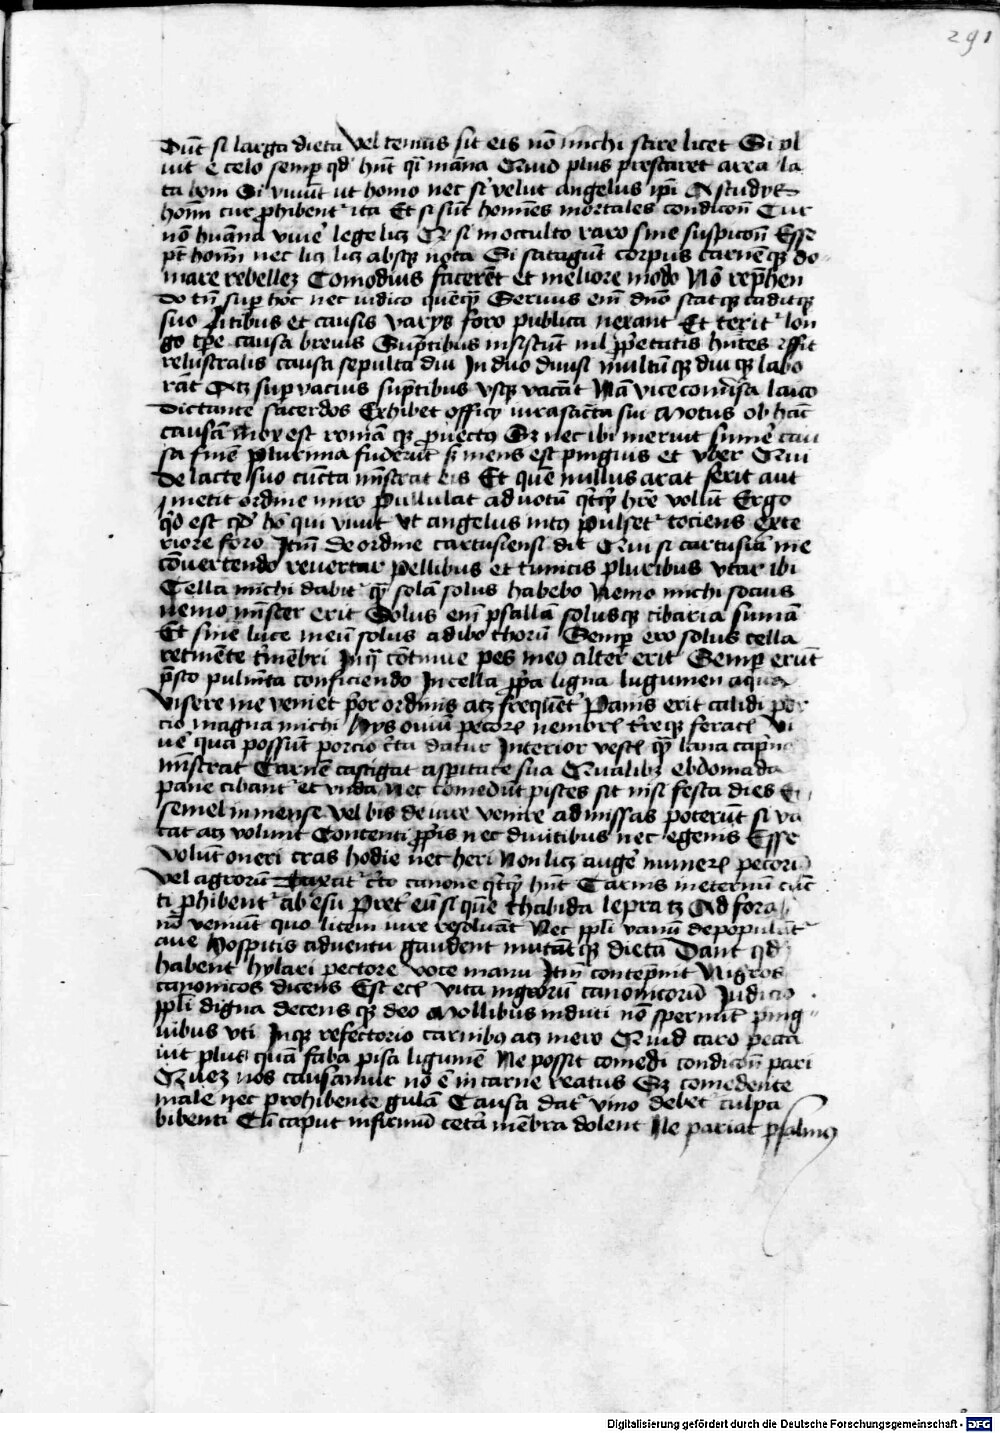 291
Dūt si larga dieta vel tenuis sit eis nō michi scire licet Si pl
uit e celo semp qd hūt qi māna Quid plus prestaret area la
ta bom Si viuūt ut homo nec si velut angelus ipi A studys
hoīm cur phibent ita Et si sūt homīes mortales condicōn Cur
nō huāna viuē lege licz Et si in occulto raro sine suspicōn Esse
pt hoīm nec licz absqz nota Si satagūt corpus carnēqz do
mare rebellez Comodius facerēt et meliore modo Nō rephen
do tn̄ sup hoc nec iudico quēqz Seruus em̄ dno stat qz caditqz
suo litibus et causis varys foro publica vexant Et terit lon
go tpe causa breuis Suptibus insistūt nil ppetatis hūtes
relustralis causa sepulta diu In duo diuisi multūqz diu qz labo
rāt Atz supvacuis suptibus vsqz vacāt Nā vice conusa laico
dictante sacerdos Exhibet officy iura sācta sui Motus ob hāc
causā mox est romā qz puectus Sz nec ibi meruit sumē cau
sa finē Plurima fuderūt si mens est pinguis et vber Qui
de lacte suo cūcta mīstrat eis Et quē nullus arat serit aut
metit ordine miro Pullulat ad votū qcqz hrē vollūt Ergo
qd est qd ho qui viuit vt angelus intus Pulset tociens exte
riore foro Itm̄ De ordine cartusiensi dit Qui si cartusiā me
cōuertendo reuertar Pellibus et tunicis pluribus vtar ibi
Cella michi dabit qz solā solus habebo Nemo michi socius
nemo mīster erit Solus em̄ psallā solusqz cibaria sumā
Et sine luce meū solus adibo thorū Semp ero solus cella
retinēte Inq cōtinue pes meus alter erit Semp erūt
psto pulmta conficiendo In cella ppa ligna lugumen aqua
Visere me veniet por ordinis atz frequēt Panis erit calidi por
cio magna michi Hys ouiū pecorz Ui
uē qua possūt porcio cta datur Interior vestz qz lana capna
mīstrat Carnē castigat aspitate sua Qualibz ebdomada
pane cibant et vnda Nec comedūt pisces sit nisi festa dies Et
semel in mense vel bis de iure venire ad missas poterūt si va
cat atz volunt Contenti ppis nec diuitibus nec egenis Esse
volūt oneri cras hodie nec heri Non licz augē numerz pecori
vel agrorū Taxat cto canone qcqz hūt Carnis in eternū cūc
ti phibent ab esu Pret eū si quē thabida lepra tz Ad fora
nō veniūt quo litem iure resoluāt Nec ppli vanū depopulāt
aue Hospitis aduentu gaudent mutāt qz dieta Dant qd
habent hylari pectore voce manu Itm̄ contepnit Nigros
canonicos dicens Est ecz vita nigrorū canonicorū Judicio
ppli digna decens qz deo Mollibus induti nō spernūt ping
uibus vti Inqz refectorio carnibus atz mero Quid caro pecca
uit plus quā faba pisa ligumē Ne possit comedi condicōn pari
Quez nos causamur nō ē in carne reatus Sz comedente
male nec prohibente gulā Causa dat vino debet culpa
bibenti Cū caput infirmū ceta mēbra dolent Ne pariat psalmus
Digitalisierung gefördert durch die Deutsche Forschungsgemeinschaft - DFG